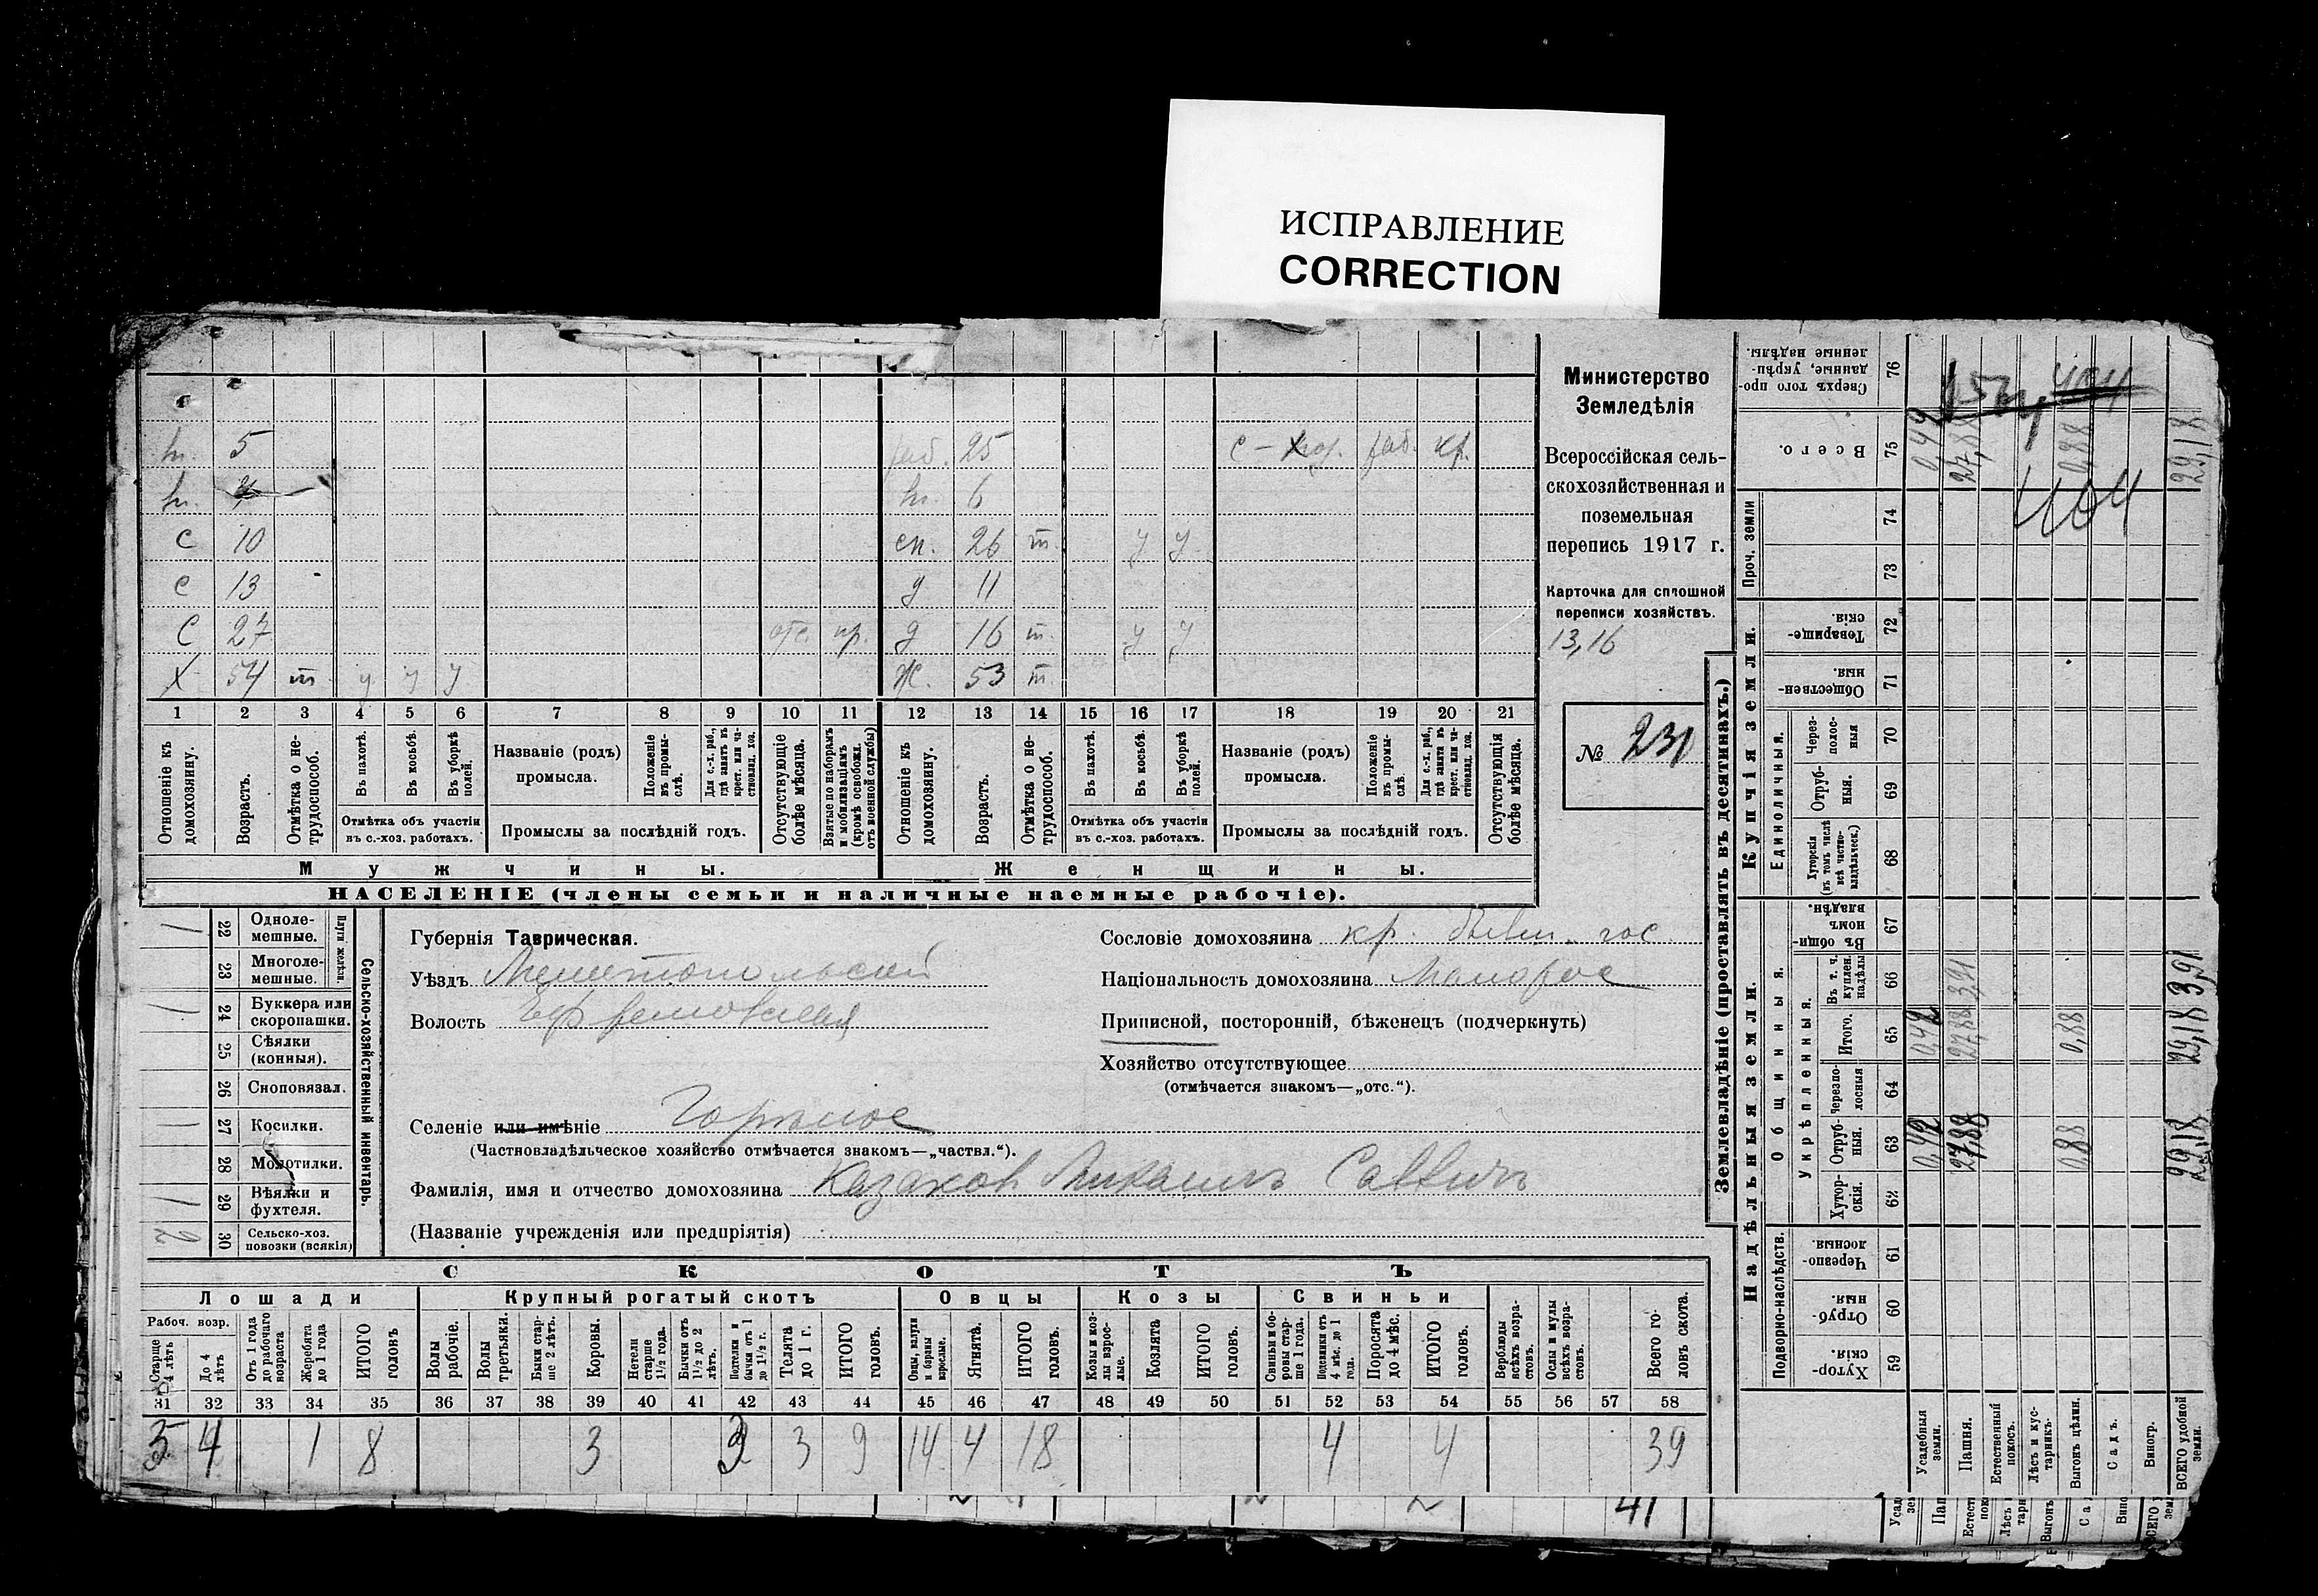 ИСПРАВЛЕНИЕ
CORRECTION
h. 5
h.
с 10
с 13
С 27 отс. пр.
Х 54 т у у у
раб. 25 с-хоз. раб. кр.
h. 6
сн. 26 т у у
д 11
д 16 т. у у
Ж. 53 т.
1 2 3 4 5 6 7 8 9 10 11 12 13 14 15 16 17 18 19 20 21
Отношеніе къ домохозяину.
Возрастъ.
Отмѣтка о не-трудоспособ.
Въ пахотѣ.
Въ косьбѣ.
Въ уборкѣ полей.
Отмѣтка объ участіи
въ с.-хоз. работахъ.
Названіе (родъ)
промысла.
Положеніе въ промы-слѣ.
Для с.-х. раб., гдѣ занятъ въ крест. или ча-стновлад. хоз.
Промыслы за послѣдній годъ.
Отсутствующіе болѣе мѣсяца.
Взятые по наборамъ и мобилизаціямъ (кромѣ освобожд. отъ военной службы)
Отношеніе къ домохозяину.
Возрастъ.
Отмѣтка о не-трудоспособ.
Въ пахотѣ.
Въ косьбѣ.
Въ уборкѣ полей.
Отмѣтка объ участіи
въ с.-хоз. работахъ.
Названіе (родъ)
промысла.
Положеніе въ промы-слѣ.
Для с.-х. раб., гдѣ занята въ крест. или ча-стновлад. хоз.
Промыслы за послѣдній годъ.
Отсутствующія болѣе мѣсяца.
Мужчины.
Женщины.
НАСЕЛЕНІЕ (члены семьи и наличные наемные рабочіе).
Министерство
Земледѣлія
Всероссійская сель-
скохозяйственная и
поземельная
перепись 1917 г.
Карточка для сплошной
переписи хозяйствъ.
13,16
№ 231
22 Одноле-мешные.
23 Многоле-мешные.
Плуги желѣзн.
24 Буккера или скоропашки.
25 Сѣялки (конныя).
26 Сноповязал.
27 Косилки.
28 Молотилки.
29 Вѣялки и фухтеля.
30 Сельско-хоз. повозки (всякія)
Сельско-хозяйственный инвентарь.
1
1
1
1
2
Губернія Таврическая.
Уѣздъ Мелитопольский
Волость Ефремовская
Селеніе или имѣніе Горѣлое
(Частновладѣльческое хозяйство отмѣчается знакомъ—„частвл.“).
Фамилія, имя и отчество домохозяина Казаков Михаилъ Саввичъ
(Названіе учрежденія или предпріятія)
Сословіе домохозяина кр. бывш. гос.
Національность домохозяина Малорос
Приписной, посторонній, бѣженецъ (подчеркнуть)
Хозяйство отсутствующее
(отмѣчается знакомъ—„отс.“).
СКОТЪ
Лошади
Крупный рогатый скотъ
Овцы
Козы
Свиньи
Рабоч. возр.
Старше 4 лѣтъ
До 4 лѣтъ
Отъ 1 года до рабочаго возраста
Жеребята до 1 года
ИТОГО головъ
Волы рабочіе.
Волы третьяки.
Быки стар-ше 2 лѣтъ.
Коровы.
Нетели старше 1½ года.
Бычки отъ 1½ до 2 лѣтъ.
Подтелки и бычки отъ 1 до 1½ г.
Телята до 1 г.
ИТОГО головъ.
Овцы, валухи и бараны взрослые.
Ягнята.
ИТОГО головъ.
Козы и коз-лы взрос-лые.
Козлята
ИТОГО головъ.
Свиньи и бо-ровы стар-ше 1 года.
Подсвинки отъ 4 мѣс. до 1 года.
Поросята до 4 мѣс.
ИТОГО головъ.
Верблюды всѣхъ возра-стовъ.
Ослы и мулы всѣхъ возра-стовъ.
Всего го-ловъ скота.
31 32 33 34 35 36 37 38 39 40 41 42 43 44 45 46 47 48 49 50 51 52 53 54 55 56 57 58
3 4 1 8 3 3 3 9 14 4 18 4 4 39
41
Землевладѣніе (проставлять въ десятинахъ.)
Надѣльныя земли.
Купчія земли.
Проч. земли
Подворно-наслѣдств.
Общинныя.
Укрѣпленныя.
Единоличныя.
Сверхъ того про-данные, укрѣп-ленные надѣлы. 76
Всего. 75
74
73
Товарище-скія. 72
Обществен-ныя. 71
Через-полос-ныя 70
Отруб-ныя. 69
Хуторскія (въ томъ числѣ всѣ частно-владѣльческ.) 68
Въ общин-номъ владѣн. 67
Въ т. ч. куплен. надѣлы 66
Итого. 65
Черезпо-лосныя 64
Отруб-ныя. 63
Хутор-скія. 62
Черезпо-лосныя. 61
Отруб-ныя. 60
Хутор-скія. 59
404
0,42 27,88 0,88 29,18
3,91 3,91
0,42 27,88 0,88 29,18
0,42 27,88 0,88 29,18
Усадебныя земли.
Пашня.
Естественный покосъ.
Лѣсъ и кус-тарникъ.
Выгонъ цѣлин.
Садъ.
Виногр.
ВСЕГО удобной земли.